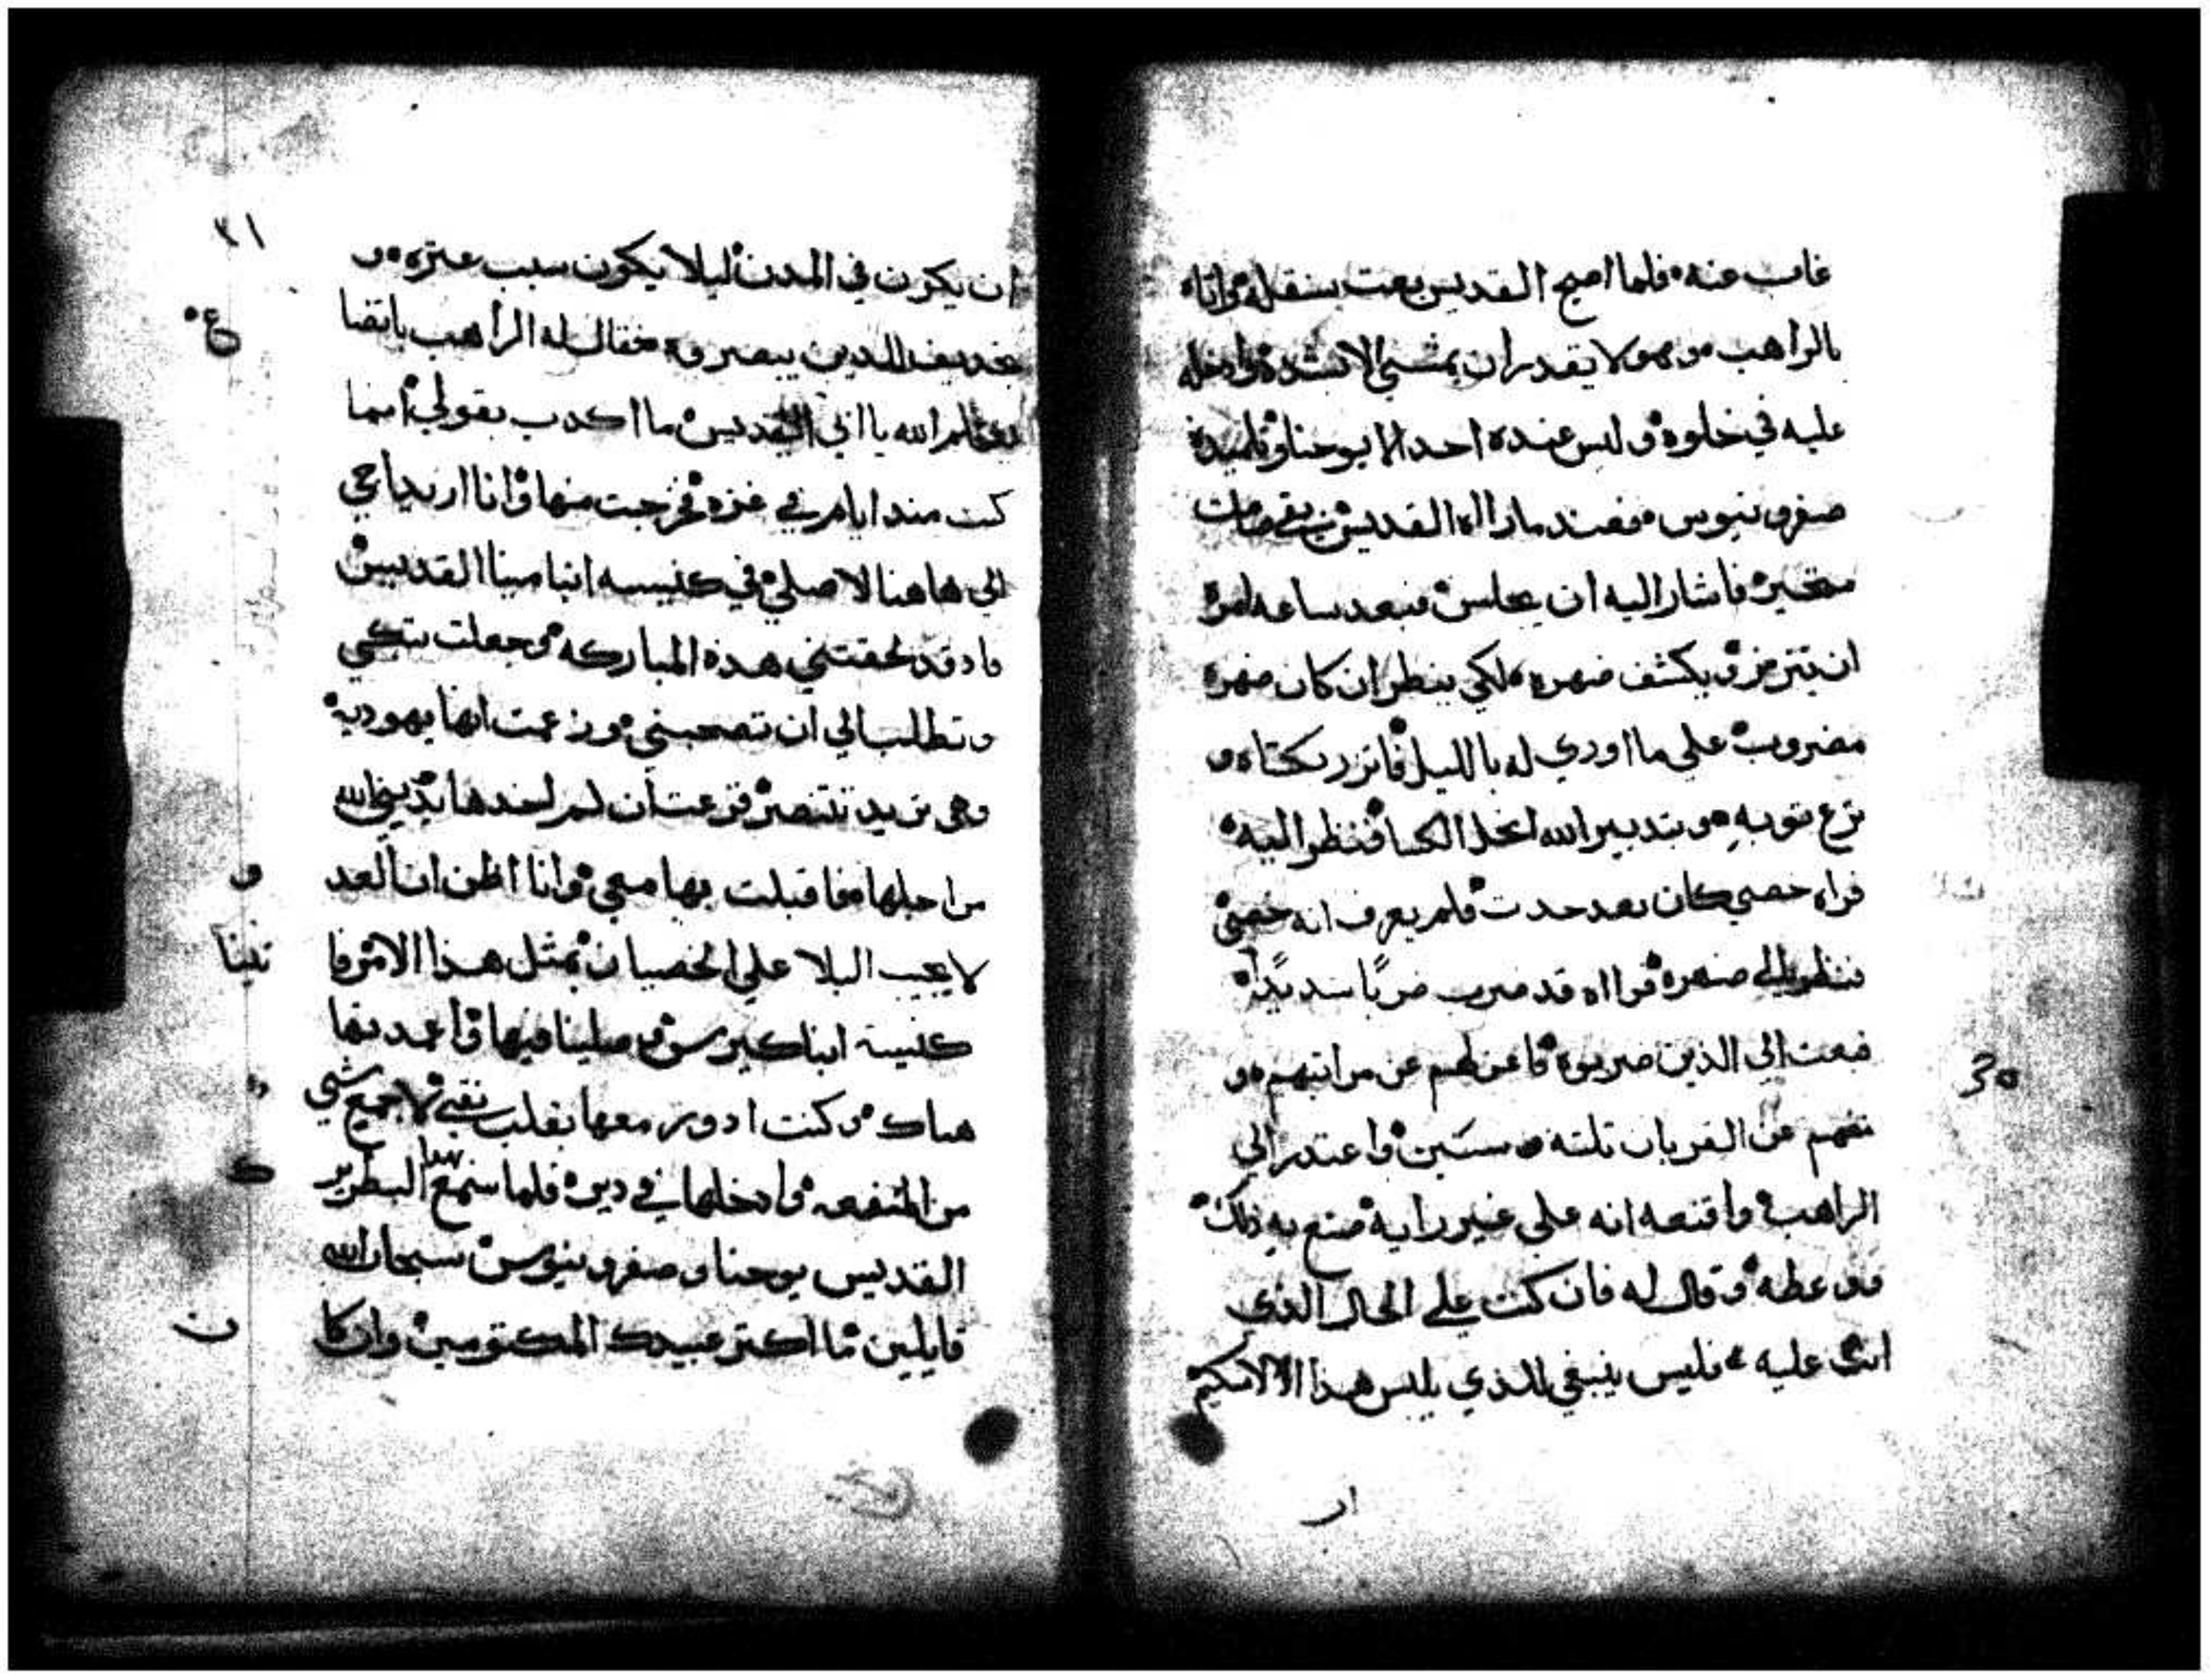 غاب عنه فلما اصبح القديس بعت بنقله واتاه
بالراهب وهو لا يقدر ان يمشي الا بشده وادخله
عليه في خلوه وليس عنده احد الا يوحنا وتلميده
صفرونيوس فعند ما راااه القديس بقي صامت
متحير فاشار اليه ان يجلس فبعد ساعه امره
ان يتزر ويكشف ضهره لكي ينظر ان كان ضهره
مضروب على ما اوري له بالليل فاتزر بكتاه و
نزع توبه وبتدبير الله انحل الكسا فنظر اليه
فراه خصي كان بعد حدت فلم يعرف انه خصي
فنظر الي ضهره فرااه قد ضرب ضربًا شديدًا
فبعت الي الذين ضربوه فاعزلهم عن مراتبهم و
منعهم عن القربان تلته سنين واعتدر الي
الراهب واقنعه انه علي غير رايه صنع به ذلك
ووعظه وقال له فان كنت علي الحال الذي
انت عليه فليس ينبغي للذي يلبس هذا الاسكيم
ار
٣١
ان يكون في المدن ليلا يكون سبب عتره و
تجديف للدين يبصروه فقال له الراهب باتضاع
الله يا ابي القديس ما اكدب بقولي انما
كنت مند ايام في غزه فخرجت منها وانا اريد اجي
الي هاهنا لاصلي في كنيسه انبا مينا القديس
واد قد لحقتني هذه المباركه وجعلت تبكي
وتطلب الي ان تصحبني وزعمت انها يهوديه
وهي تريد تتنصر فزعت ان لم اخدها يديني الله
من اجلها فاقبلت بها معي وانا اظن ان العدو
لا يجيب البلا علي الخصيان بمثل هذا الامر فاتينا
كنيسة ابنا كيرس وصلينا فيها واعمدتها
هناك وكنت ادور معها بقلب نقي لاجمع شي
من المنفعه وادخلها في دير فلما سمع البطريرك
القديس يوحنا وصفرونيوس سبحان الله
قايلين ما اكتر عبيدك المكتومين وان كان